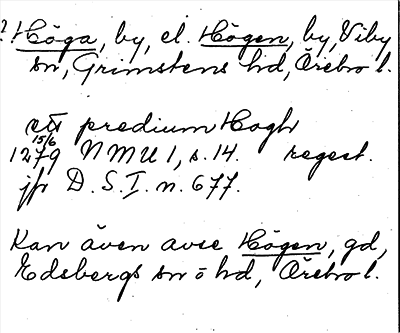 ? Höga, by, el. Högen, by, Viby
sn, Grimstens hd, Örebro l.
ett predium Hogh
15/6
1279 NMU 1, s. 14. regest.
jfr D. S. I. n. 677.
Kan även avse Högen, gd,
Edsbergs sn o hd, Örebro l.